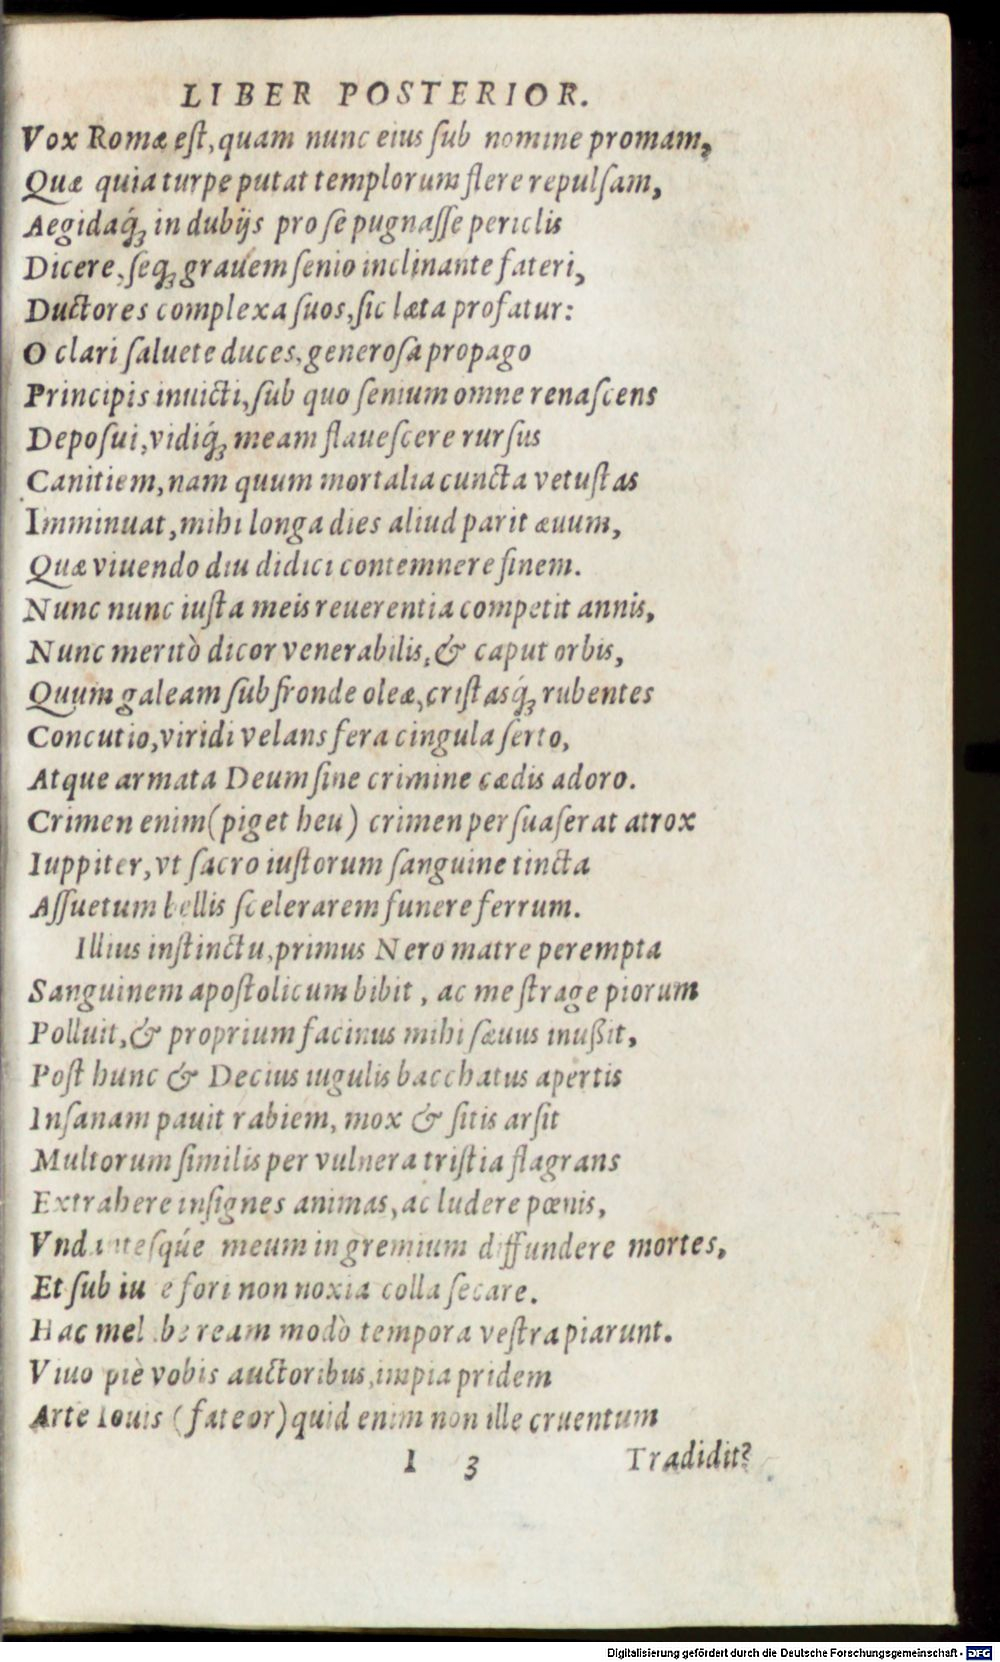 LIBER POSTERIOR.
Vox Romæ eſt, quam nunc eius ſub nomine promam,
Quæ quia turpe putat templorum flere repulſam,
Aegidaq́ꝫ in dubijs pro ſe pugnaſſe periclis
Dicere, ſeqꝫ grauem ſenio inclinante fateri,
Ductores complexa ſuos, ſic læta profatur:
O clari ſaluete duces, generoſa propago
Principis inuicti, ſub quo ſenium omne renaſcens
Depoſui, vidiq́ꝫ meam flaueſcere rurſus
Canitiem, nam quum mortalia cuncta vetuſtas
Imminuat, mihi longa dies aliud parit æuum,
Quæ viuendo diu didici contemnere finem.
Nunc nunc iuſta meis reuerentia competit annis,
Nunc meritò dicor venerabilis, & caput orbis,
Quum galeam ſub fronde oleæ, criſtasq́ꝫ rubentes
Concutio, viridi velans fera cingula ſerto,
Atque armata Deum ſine crimine cædis adoro.
Crimen enim (piget heu) crimen perſuaſerat atrox
Iuppiter, vt ſacro iuſtorum ſanguine tincta
Aſſuetum bellis ſcelerarem funere ferrum.
Illius inſtinctu, primus Nero matre perempta
Sanguinem apoſtolicum bibit, ac me ſtrage piorum
Polluit, & proprium facinus mihi ſæuus inußit,
Poſt hunc & Decius iugulis bacchatus apertis
Inſanam pauit rabiem, mox & ſitis arſit
Multorum ſimilis per vulnera triſtia flagrans
Extrahere inſignes animas, ac ludere pœnis,
meum in gremium diffundere mortes,
Et ſub iu e fori non noxia colla ſecare.
Hac modò tempora veſtra piarunt.
Viuo piè vobis auctoribus, impia pridem
Arte Iouis (fateor) quid enim non ille cruentum
I 3 Tradidit?
Digitalisierung gefördert durch die Deutsche Forschungsgemeinschaft - DFG